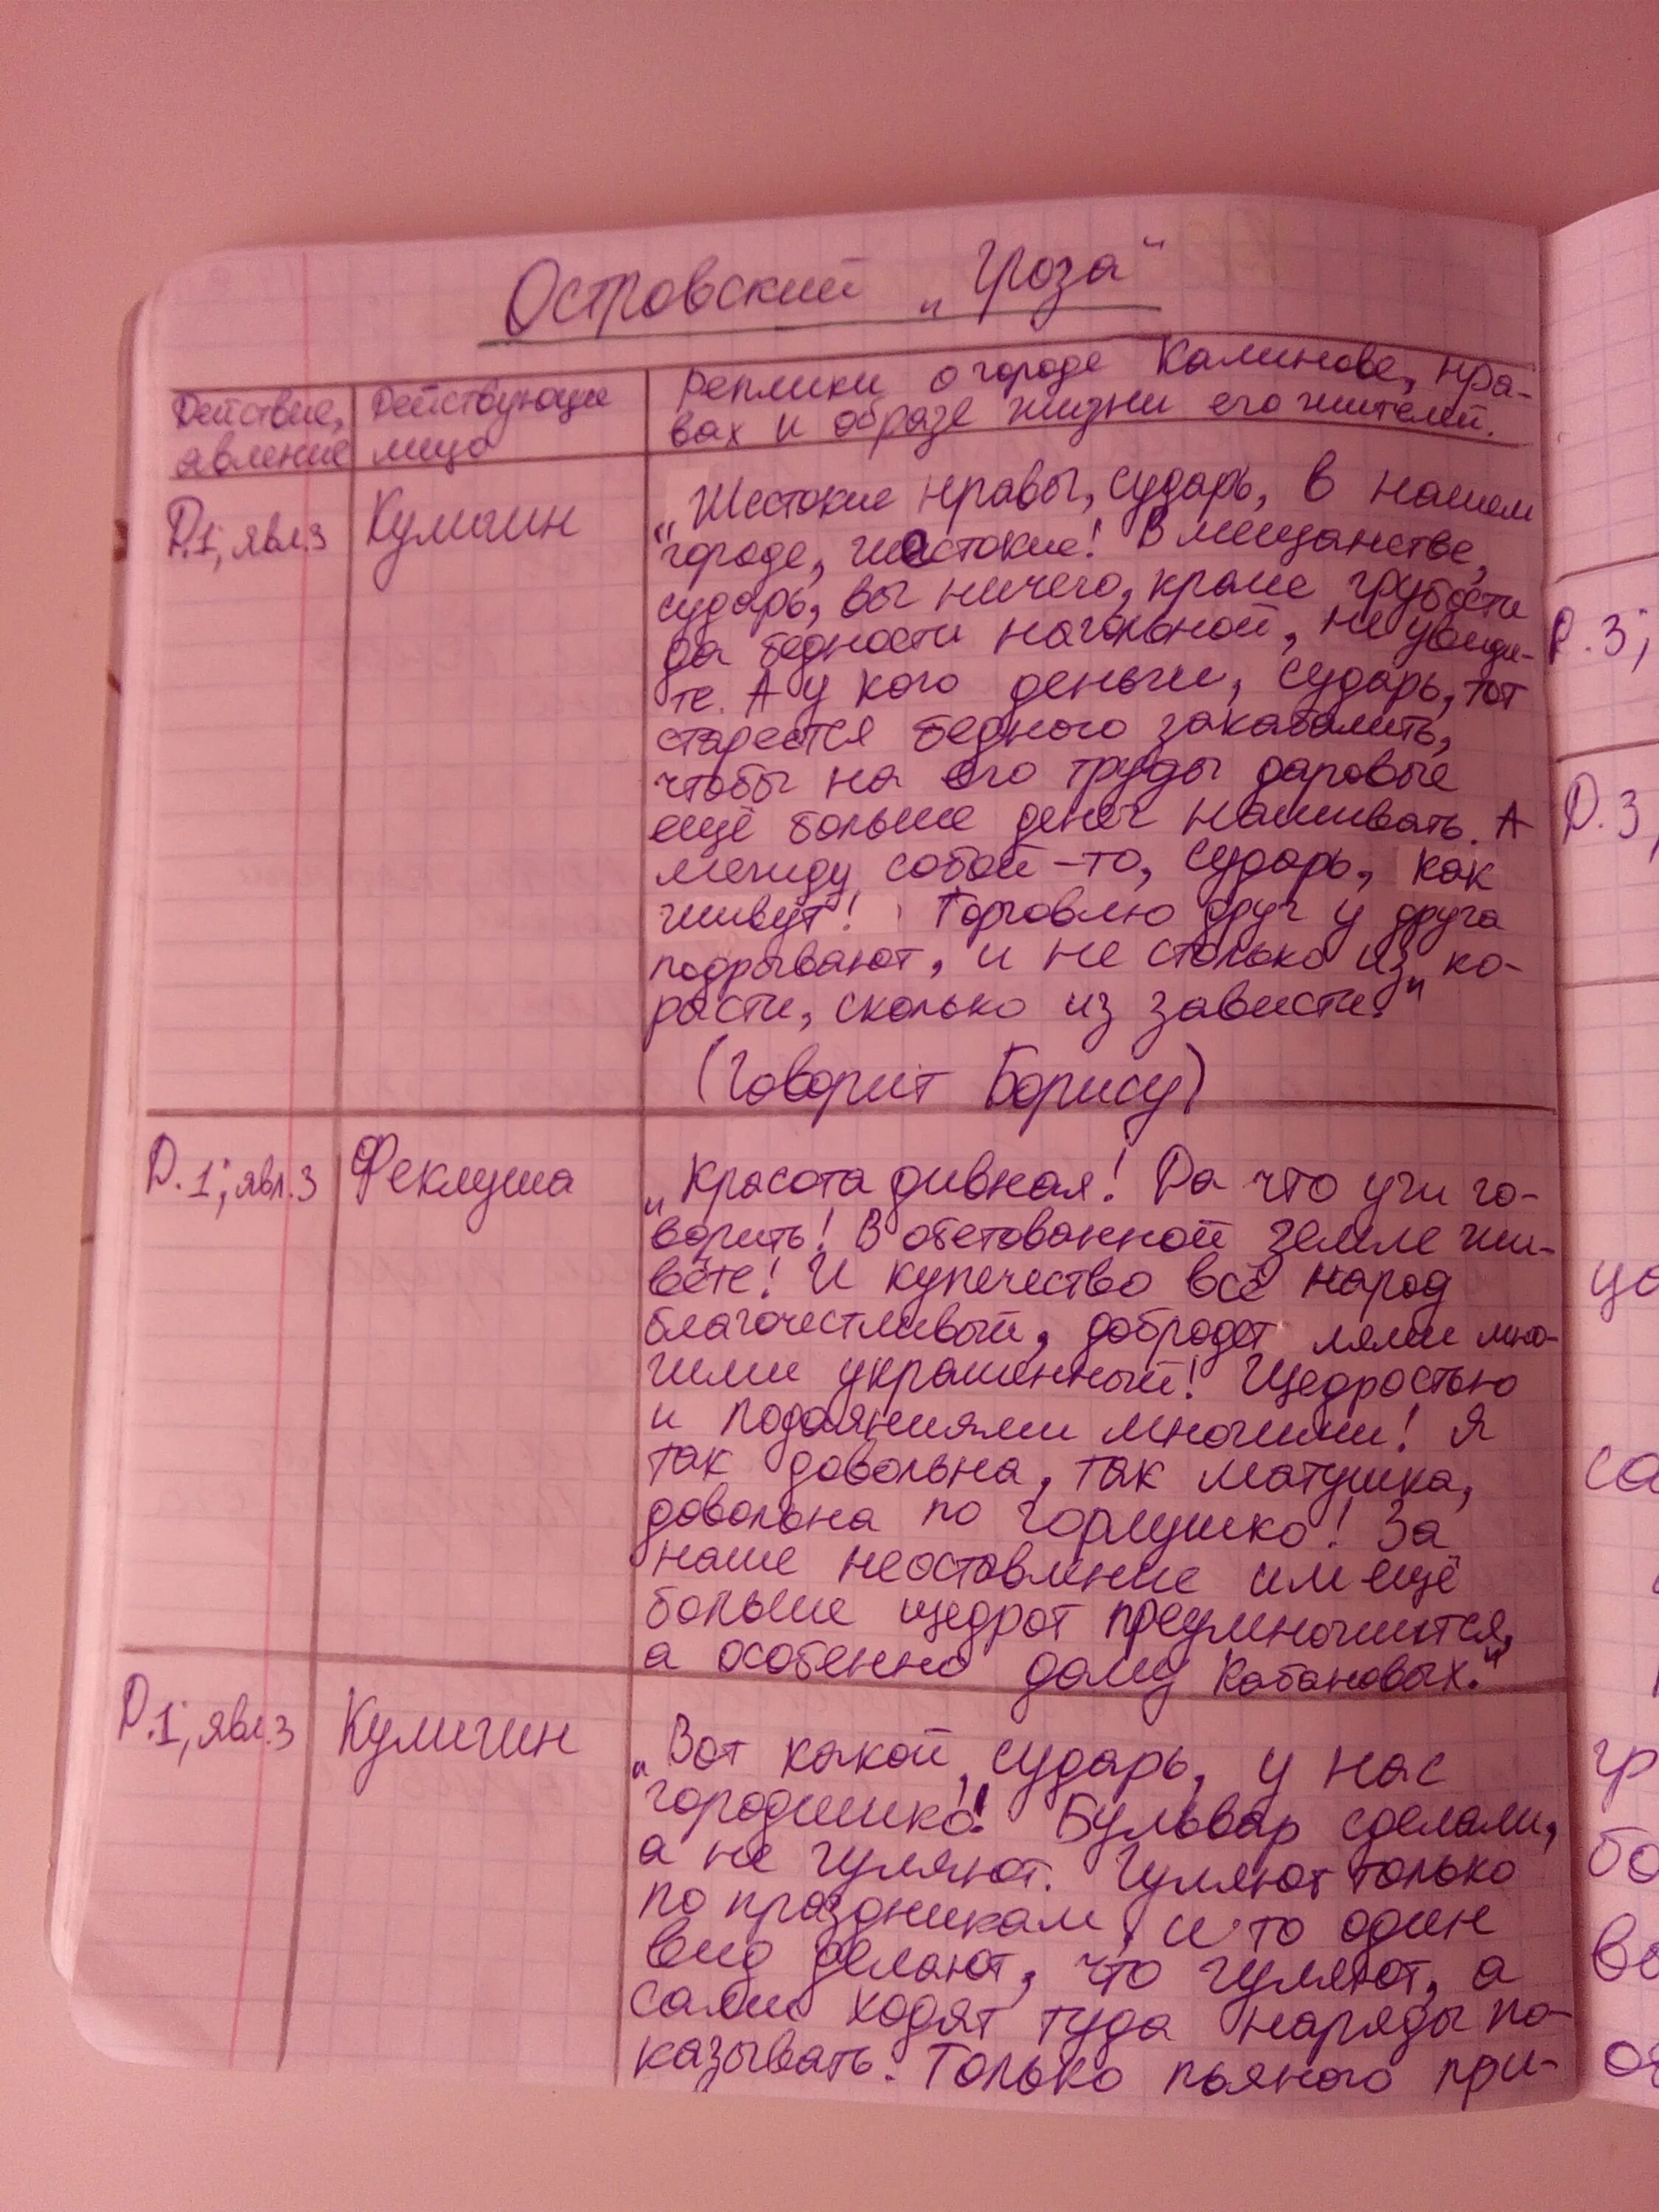 Островский „Гроза“
Действие, явление
Действующие лица
Реплики о городе Калинове, нра-
вах и образе жизни его жителей.
Д.1; явл.3
Кулигин
„Жестокие нравы, сударь, в нашем
городе, жестокие! В мещанстве,
сударь, вы ничего, кроме грубости
да бедности нагольной, не увиди-
те. А у кого деньги, сударь, тот
стареется бедного закабалить,
чтобы на его труды даровые
ещё больше денег наживать. А
между собой-то, сударь, как
живут! Торговлю друг у друга
подрывают, и не столько из ко-
рысти, сколько из зависти."
(Говорит Борису)
Д.1; явл.3
Феклуша
„Красота дивная! Да что уж го-
ворить! В обетованной земле жи-
вёте! И купечество всё народ
благочестливый, добродет лями мно-
гими украшенный! Щедростью
и подаяниями многими! Я
так довольна, так матушка,
довольна по горлушко! За
наше неоставление им ещё
больше щедрот преумножится,
а особенно дому Кабановых."
Д.1; явл.3
Кулигин
„Вот какой, сударь, у нас
городишко! Бульвар сделали,
а не гуляют. Гуляют только
по праздникам, и то один
вид делают, что гуляют, а
сами ходят туда наряды по-
казывать. Только пьяного при-
Д.3;
Д.3,
са
гр
бо